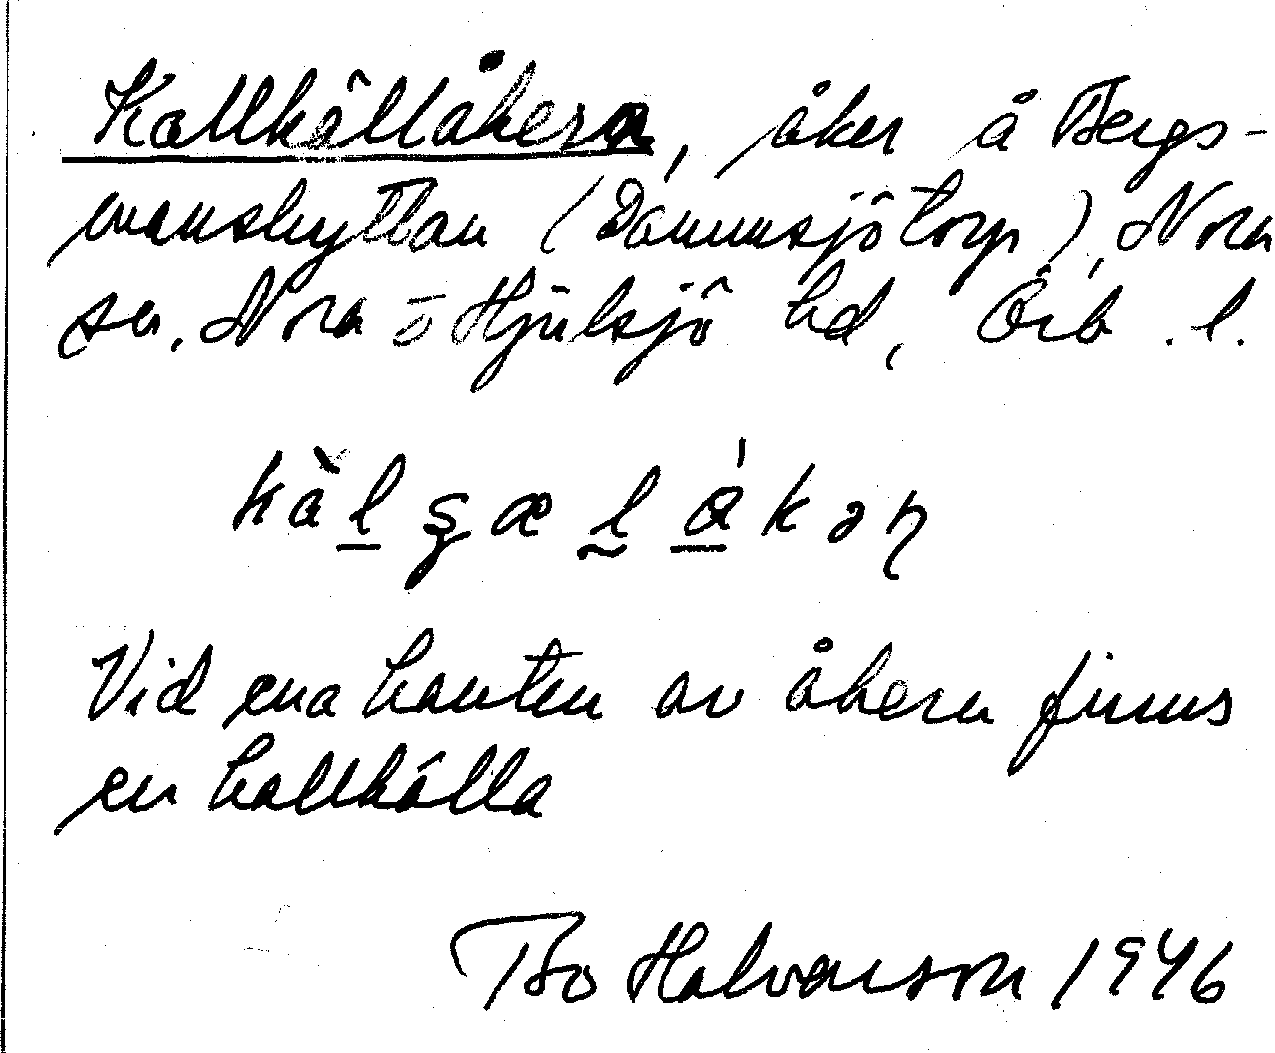 Kallkällåkern, åker å Bergs-
manshyttan (Dammsjötorp), Nora
sn. Nora o Hjulsjö hd, Örb. l.
Vid ena kanten av åkern finns
en kallkälla
Bo Halvarson 1946